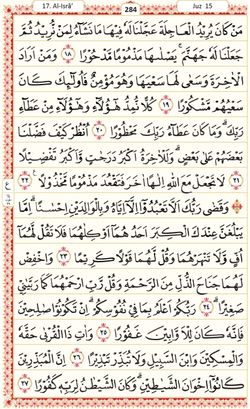 17. Al-Isrâ'
284
Juz 15
مَنْ كَانَ يُرِيدُ الْعَاجِلَةَ عَجَّلْنَا لَهُ فِيهَا مَا نَشَاءُ لِمَنْ نُرِيدُ ثُمَّ
جَعَلْنَا لَهُ جَهَنَّمَ يَصْلَاهَا مَذْمُومًا مَدْحُورًا ۝١٨ وَمَنْ أَرَادَ
الْآخِرَةَ وَسَعَى لَهَا سَعْيَهَا وَهُوَ مُؤْمِنٌ فَأُولَئِكَ كَانَ
سَعْيُهُمْ مَشْكُورًا ۝١٩ كُلًّا نُمِدُّ هَؤُلَاءِ وَهَؤُلَاءِ مِنْ عَطَاءِ
رَبِّكَ وَمَا كَانَ عَطَاءُ رَبِّكَ مَحْظُورًا ۝٢٠ انْظُرْ كَيْفَ فَضَّلْنَا
بَعْضَهُمْ عَلَى بَعْضٍ وَلَلْآخِرَةُ أَكْبَرُ دَرَجَاتٍ وَأَكْبَرُ تَفْضِيلًا
۝٢١ لَا تَجْعَلْ مَعَ اللَّهِ إِلَهًا آخَرَ فَتَقْعُدَ مَذْمُومًا مَخْذُولًا ۝٢٢
وَقَضَى رَبُّكَ أَلَّا تَعْبُدُوا إِلَّا إِيَّاهُ وَبِالْوَالِدَيْنِ إِحْسَانًا إِمَّا
يَبْلُغَنَّ عِنْدَكَ الْكِبَرَ أَحَدُهُمَا أَوْ كِلَاهُمَا فَلَا تَقُلْ لَهُمَا
أُفٍّ وَلَا تَنْهَرْهُمَا وَقُلْ لَهُمَا قَوْلًا كَرِيمًا ۝٢٣ وَاخْفِضْ
لَهُمَا جَنَاحَ الذُّلِّ مِنَ الرَّحْمَةِ وَقُلْ رَبِّ ارْحَمْهُمَا كَمَا رَبَّيَانِي
صَغِيرًا ۝٢٤ رَبُّكُمْ أَعْلَمُ بِمَا فِي نُفُوسِكُمْ إِنْ تَكُونُوا صَالِحِينَ
فَإِنَّهُ كَانَ لِلْأَوَّابِينَ غَفُورًا ۝٢٥ وَآتِ ذَا الْقُرْبَى حَقَّهُ
وَالْمِسْكِينَ وَابْنَ السَّبِيلِ وَلَا تُبَذِّرْ تَبْذِيرًا ۝٢٦ إِنَّ الْمُبَذِّرِينَ
كَانُوا إِخْوَانَ الشَّيَاطِينِ وَكَانَ الشَّيْطَانُ لِرَبِّهِ كَفُورًا ۝٢٧